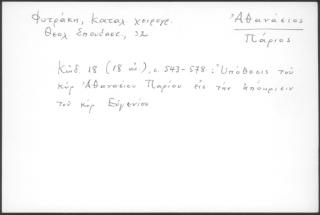 Φυτράκη, Καταλ. χειρογρ.
Θεολ. Σπουδαστ., 32
Ἀθανάσιος
Πάριος
Κῶδ. 18 (18 αἰ.), σ. 543-578: Ὑπόθεσις τοῦ
κὺρ Ἀθανασίου Παρίου εἰς τὴν ἀπόκρισιν
τοῦ κὺρ Εὐγενίου